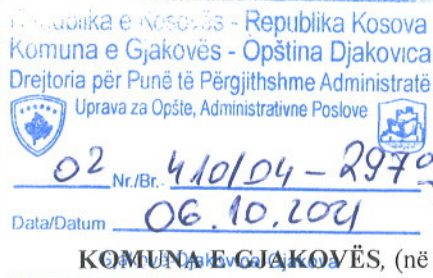 Republika e Kosovës - Republika Kosova
Komuna e Gjakovës - Opština Djakovica
Drejtoria për Punë të Përgjithshme Administratë
Uprava za Opšte, Administrativne Poslove
02 Nr./Br. 410/04-2979
Data/Datum 06.10.2021
KOMUNA E GJAKOVËS, (në